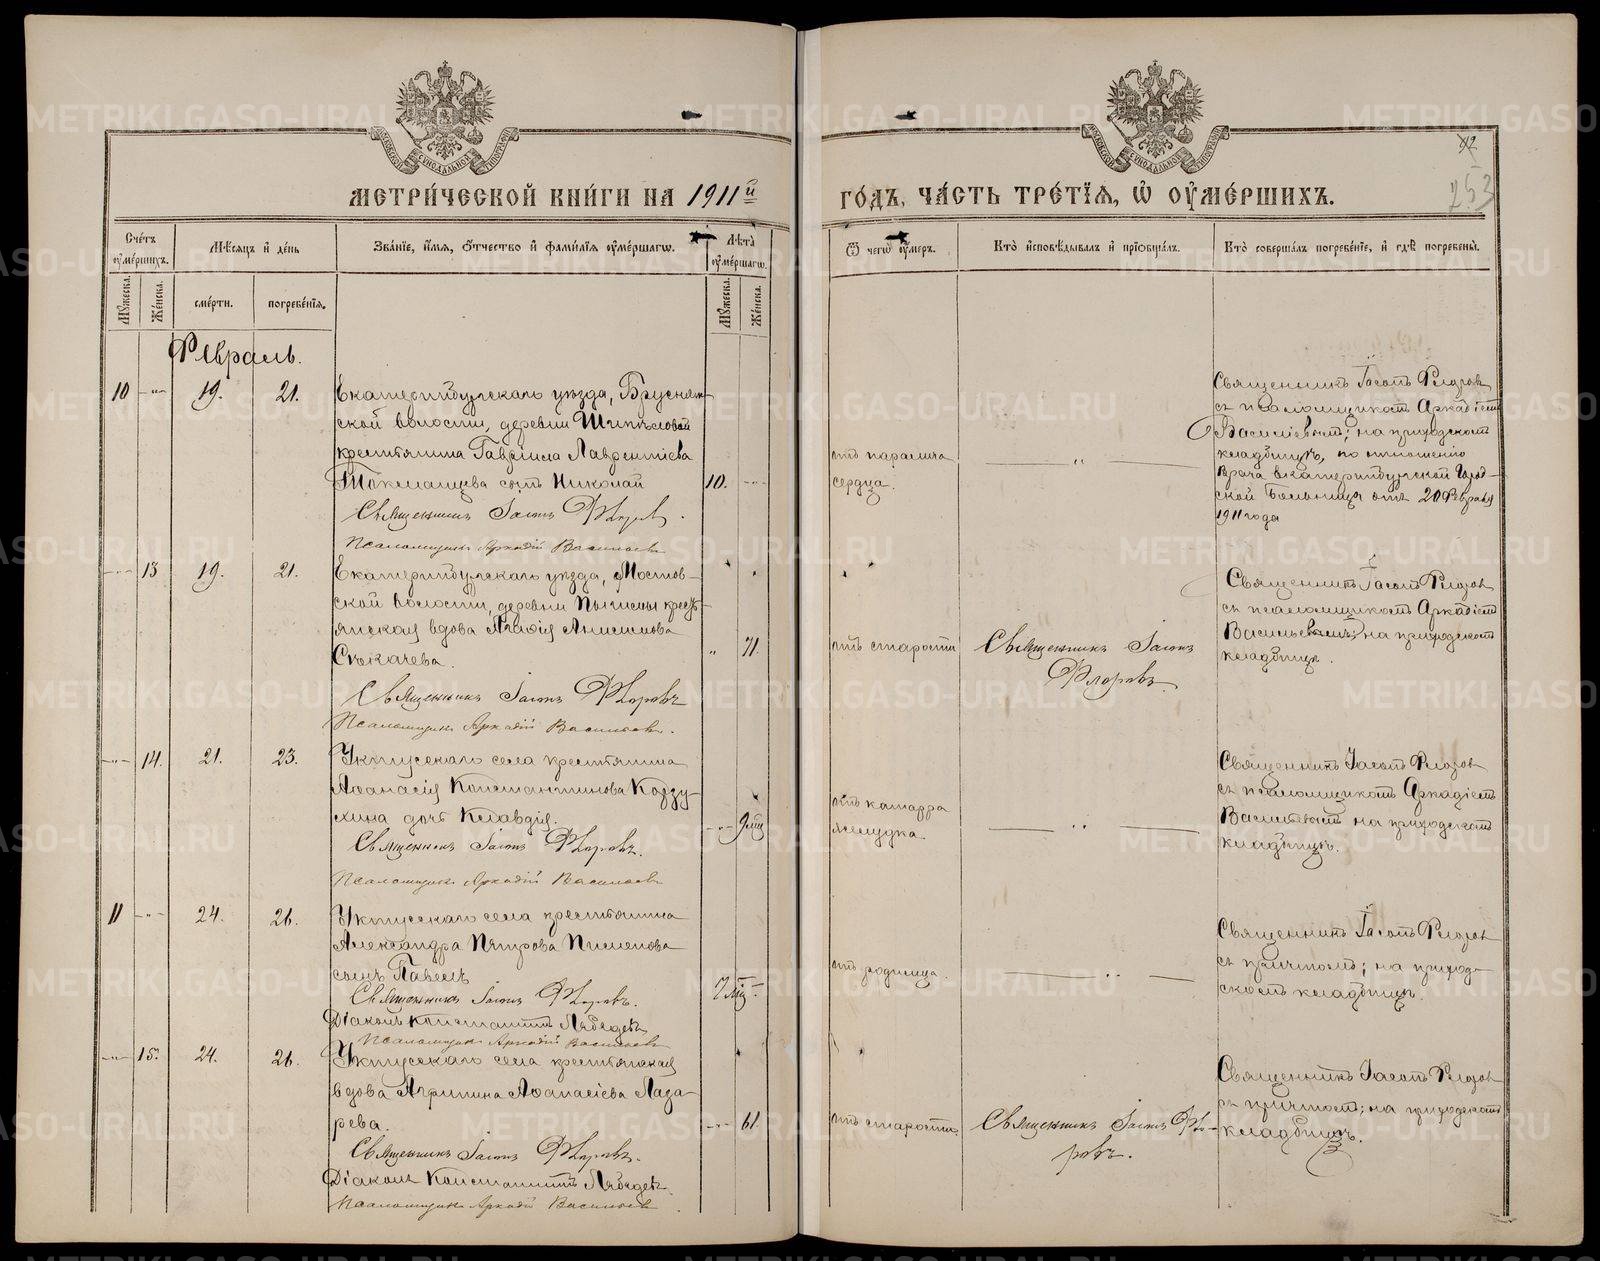 МЕТРИ́ЧЕСКОЙ КНИ́ГИ НА 1911й
ГО́ДЪ, ЧА́СТЬ ТРЕ́ТІѦ, Ѡ ОУМЕ́РШИХЪ.
42
253
Сче́тъ оуме́ршихъ.
Мѣсяцъ и день
Зва́ніе, и́мя, о́тчество и фами́лія оуме́ршагѡ.
Лѣта оуме́ршагѡ.
Ѿ чегѡ оу́меръ.
Кто исповѣдывалъ и пріобщалъ.
Кто соверша́лъ погребе́ніе, и гдѣ погребены.
Мужеска.
Женска.
сме́рти.
погребе́нія.
Мужеска.
Женска.
Февраль.
10 -„- 19. 21.
Екатеринбургскаго уѣзда, Бруснян-
ской волости, деревни Шипѣловой
крестьянина Гавріила Лаврентіева
Токманцева сынъ Николай
10. -„-
Священникъ Іасонъ Флоровъ.
Псаломщикъ Аркадій Васильевъ
отъ паралича
сердца.
„
Священникъ Іасонъ Флоровъ
съ псаломщикомъ Аркадіемъ
Васильевымъ; на приходскомъ
кладбищѣ, по отношенію
врача Екатеринбургской Город-
ской больницы отъ 20 Февраля
1911 года
-„- 13 19. 21.
Екатеринбургскаго уѣзда, Мостов-
ской волости, деревни
крестъ-
янская вдова Агафія Анисимова
Сѣкачева.
„ 71.
Священникъ Іасонъ Флоровъ
Псаломщикъ Аркадій Васильевъ.
отъ старости
Священникъ Іасонъ
Флоровъ
Священникъ Іасонъ Флоровъ
съ псаломщикомъ Аркадіемъ
Васильевымъ; на приходскомъ
кладбищѣ.
-„- 14. 21. 23.
Уктусскаго села крестьянина
Аѳанасія Константинова Корзу-
хина дочь Клавдія.
-„- 9 мѣц
Священникъ Іасонъ Флоровъ.
Псаломщикъ Аркадій Васильевъ
отъ катарра
желудка
„
Священникъ Іасонъ Флоровъ
съ псаломщикомъ Аркадіемъ
Васильевымъ на приходскомъ
кладбищѣ.
11 -„- 24. 26.
Уктусскаго села крестьянина
Александра Петрова Пименова
сынъ Павелъ
7 мѣц -„-
Священникъ Іасонъ Флоровъ.
Діаконъ Константинъ Лебедевъ
Псаломщикъ Аркадій Васильевъ
отъ родимца.
„
Священникъ Іасонъ Флоровъ
съ причтомъ; на приход-
скомъ кладбищѣ.
-„- 15. 24. 26.
Уктусскаго села крестьянская
вдова Агрипина Аѳанасіева Лаза-
рева.
-„- 61.
Священникъ Іасонъ Флоровъ.
Діаконъ Константинъ Лебедевъ.
Псаломщикъ Аркадій Васильевъ.
отъ старости.
Священникъ Іасонъ Фло-
ровъ.
Священникъ Іасонъ Флоровъ
съ причтомъ; на приходскомъ
кладбищѣ.
METRIKI.GASO-URAL.RU